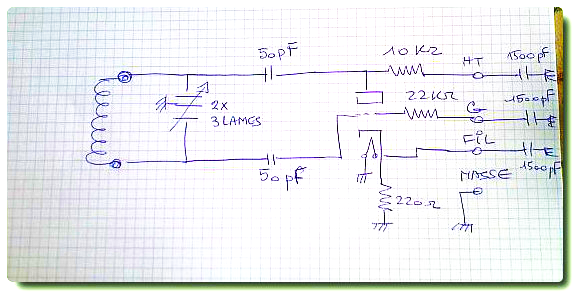 50pF
10KΩ
HT
1500pF
2x
3 LAMES
22KΩ
G
1500pF
FIL
50pF
1500pF
MASSE
220Ω